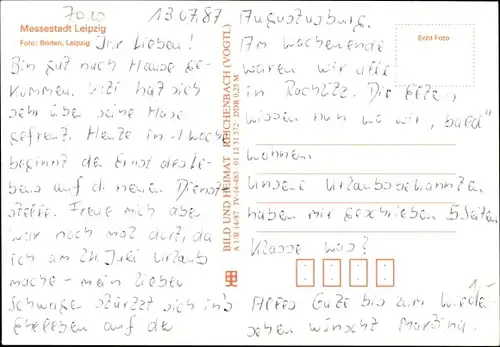 7010
13.07.87
Messestadt Leipzig
Foto: Boden, Leipzig
Ihr Lieben!
Bin gut nach Hause ge-
kommen. hat sich
sehr über seine Hose
gefreut. Heute in 1 Woche
beginnt der Ernst des Le-
bens auf d. neuen Dienst
stelle. Freue mich aber
war noch mal dort, da
ich am 24. Juli Urlaub
mache - mein lieber
Schwager stürzt sich ins
Eheleben auf der
BILD UND HEIMAT REICHENBACH (VOGTL)
A 1/B 14/87 IV-14-483 01 13 31 372 DDR 0,25 M
Augustusburg.
Am Wochenende
waren wir alle
in Rochlitz. Die Eltern
wissen nun wo wir "bald"
wohnen.
Unsere Urlaubsbekannten
haben mir geschrieben 5 Seiten
Klasse was?
Alles Gute bis zum Wieder-
sehen wünscht Martina.
Echt Foto
1,-